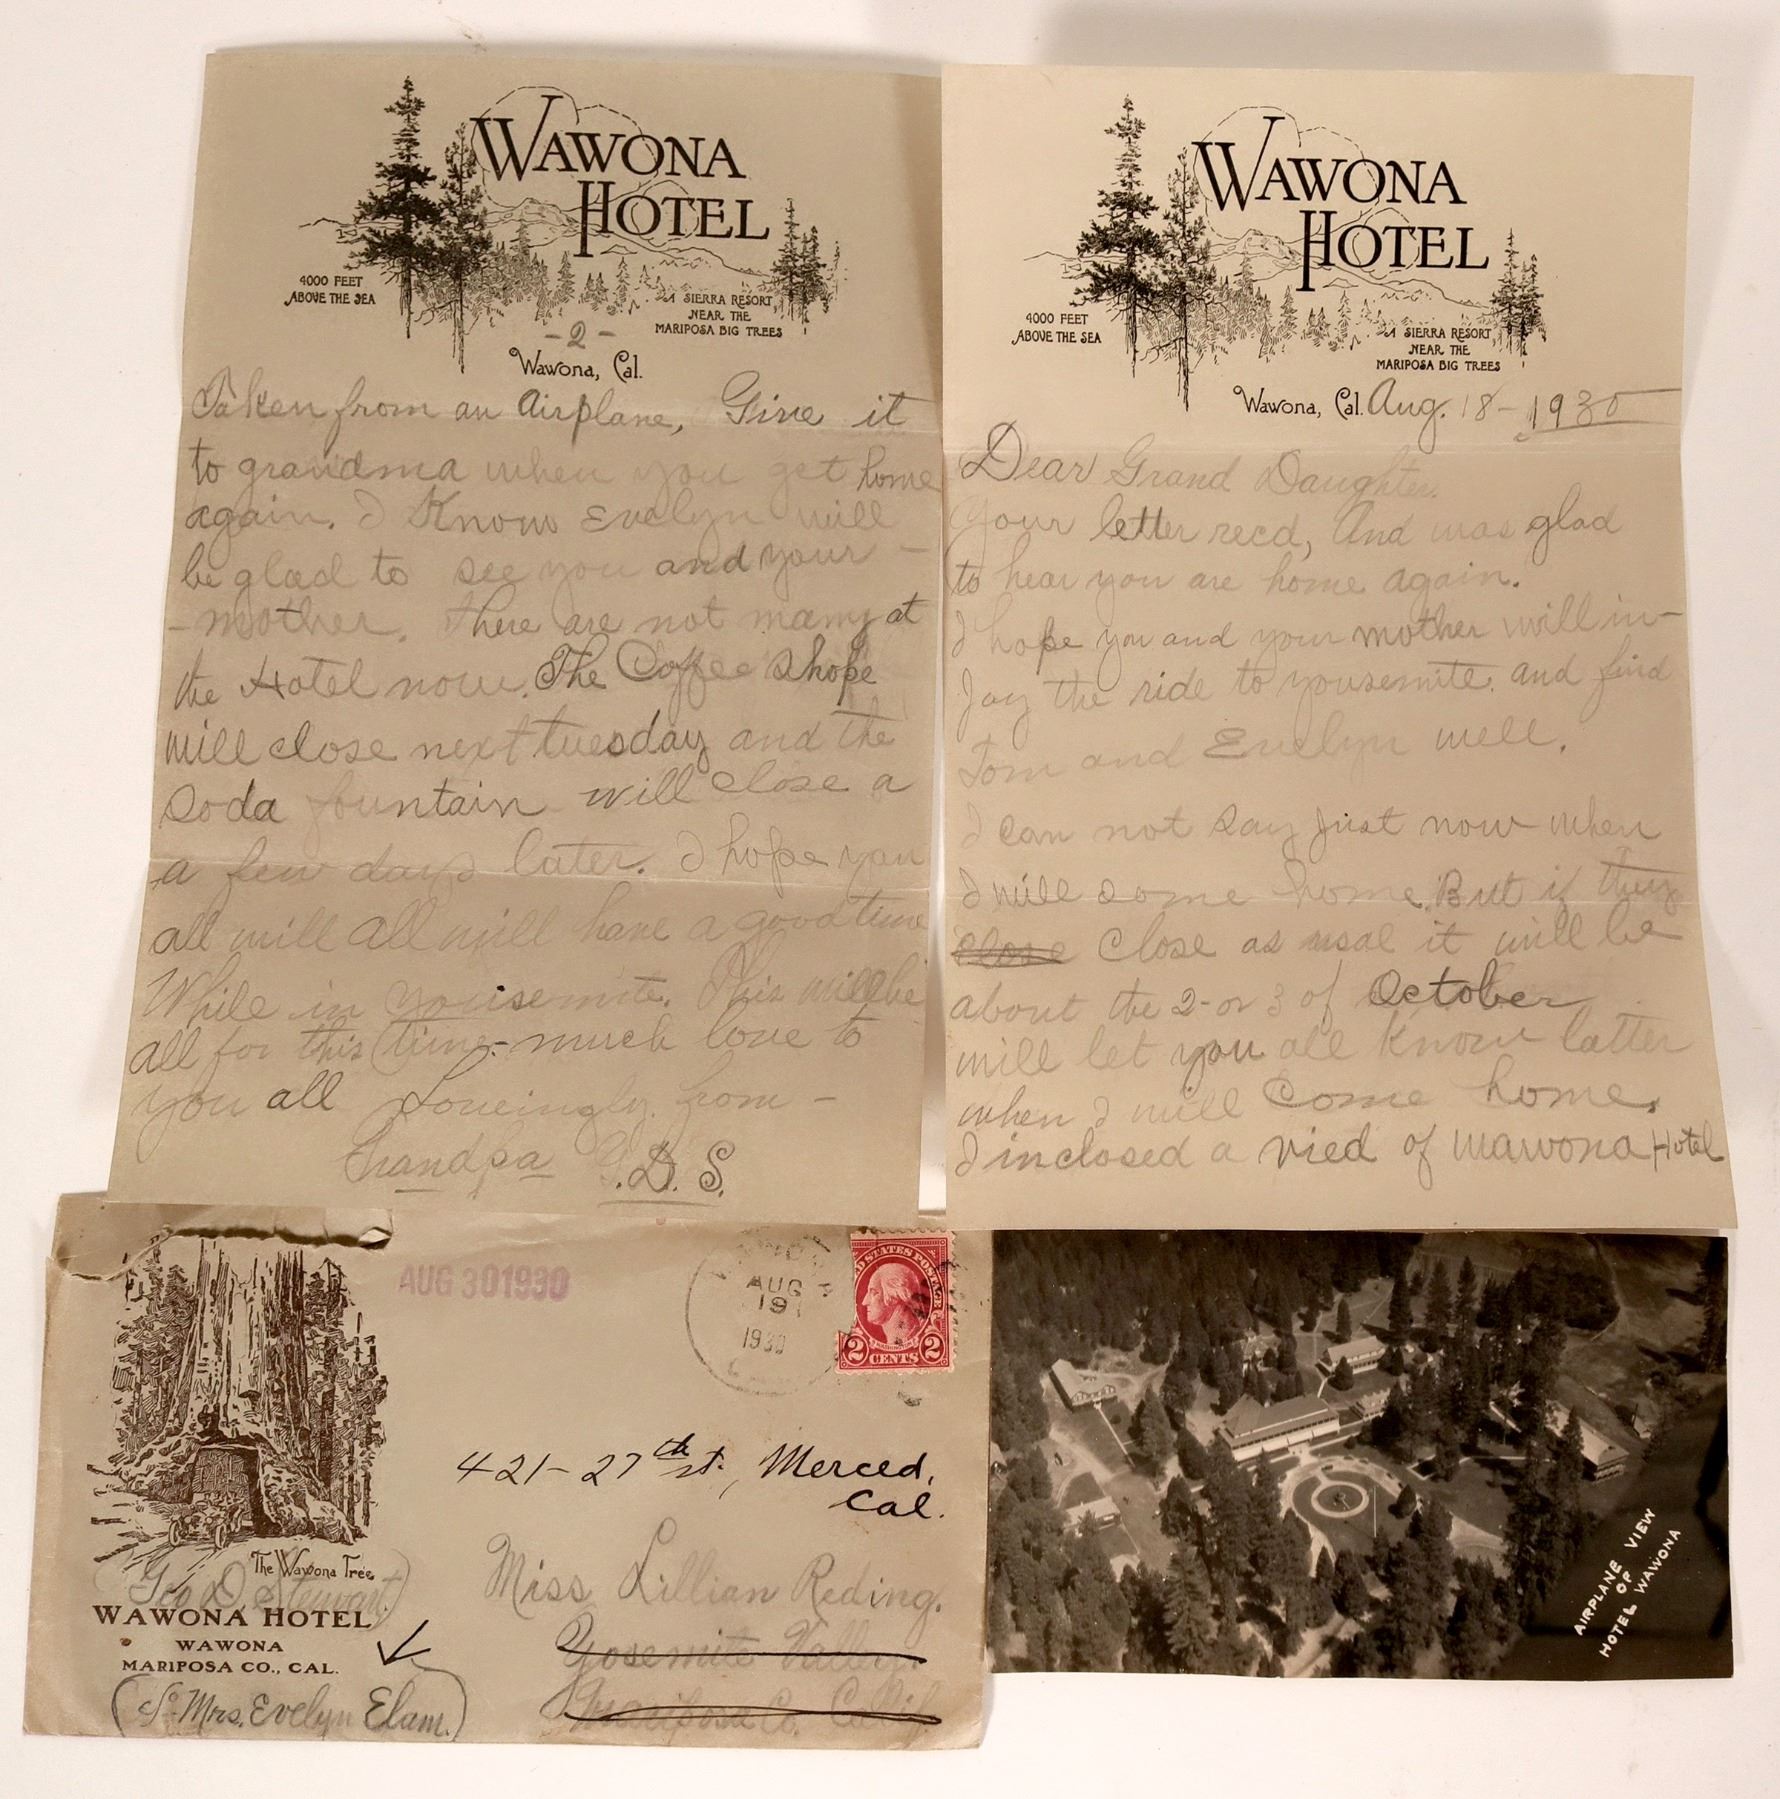 WAWONA
HOTEL
4000 FEET
ABOVE THE SEA
A SIERRA RESORT
NEAR THE
MARIPOSA BIG TREES
Wawona, Cal. Aug. 18-1930
Dear Grand Daughter.
Your letter recd, And was glad
to hear you are home again.
I hope you and your mother will in-
Joy the ride to yousemite. and find
Tom and Evelyn well.
I can not say Just now when
I will come home. But if they
close Close as usal it will be
about the 2-or 3 of October
will let you all Know latter
when I will Come home.
I inclosed a vied of wawona Hotel
WAWONA
HOTEL
4000 FEET
ABOVE THE SEA
A SIERRA RESORT
NEAR THE
MARIPOSA BIG TREES
-2-
Wawona, Cal.
Taken from an Airplane, Give it
to grandma when you get home
again. I Know Evelyn will
be glad to see you and your -
-mother. There are not many at
the Hotel now. The Coffee shope
will close next tuesday and the
Soda fountain will close a
a few days later. I hope you
all will all will have a good time
While in yousemite. This will be
all for this time- much love to
you all Loveingly from -
Grandpa G.D.S.
AUG 30 1930
AUG
19
1930
UNITED STATES POSTAGE
WASHINGTON
2 CENTS 2
421-27th st., Merced,
Cal.
Miss Lillian Reding.
Yosemite Valley.
Mariposa Co. Calif.
The Wawona Tree
Geo D. Stewart
WAWONA HOTEL
WAWONA
MARIPOSA CO., CAL.
Mrs. Evelyn Elam.
AIRPLANE VIEW
OF
HOTEL WAWONA